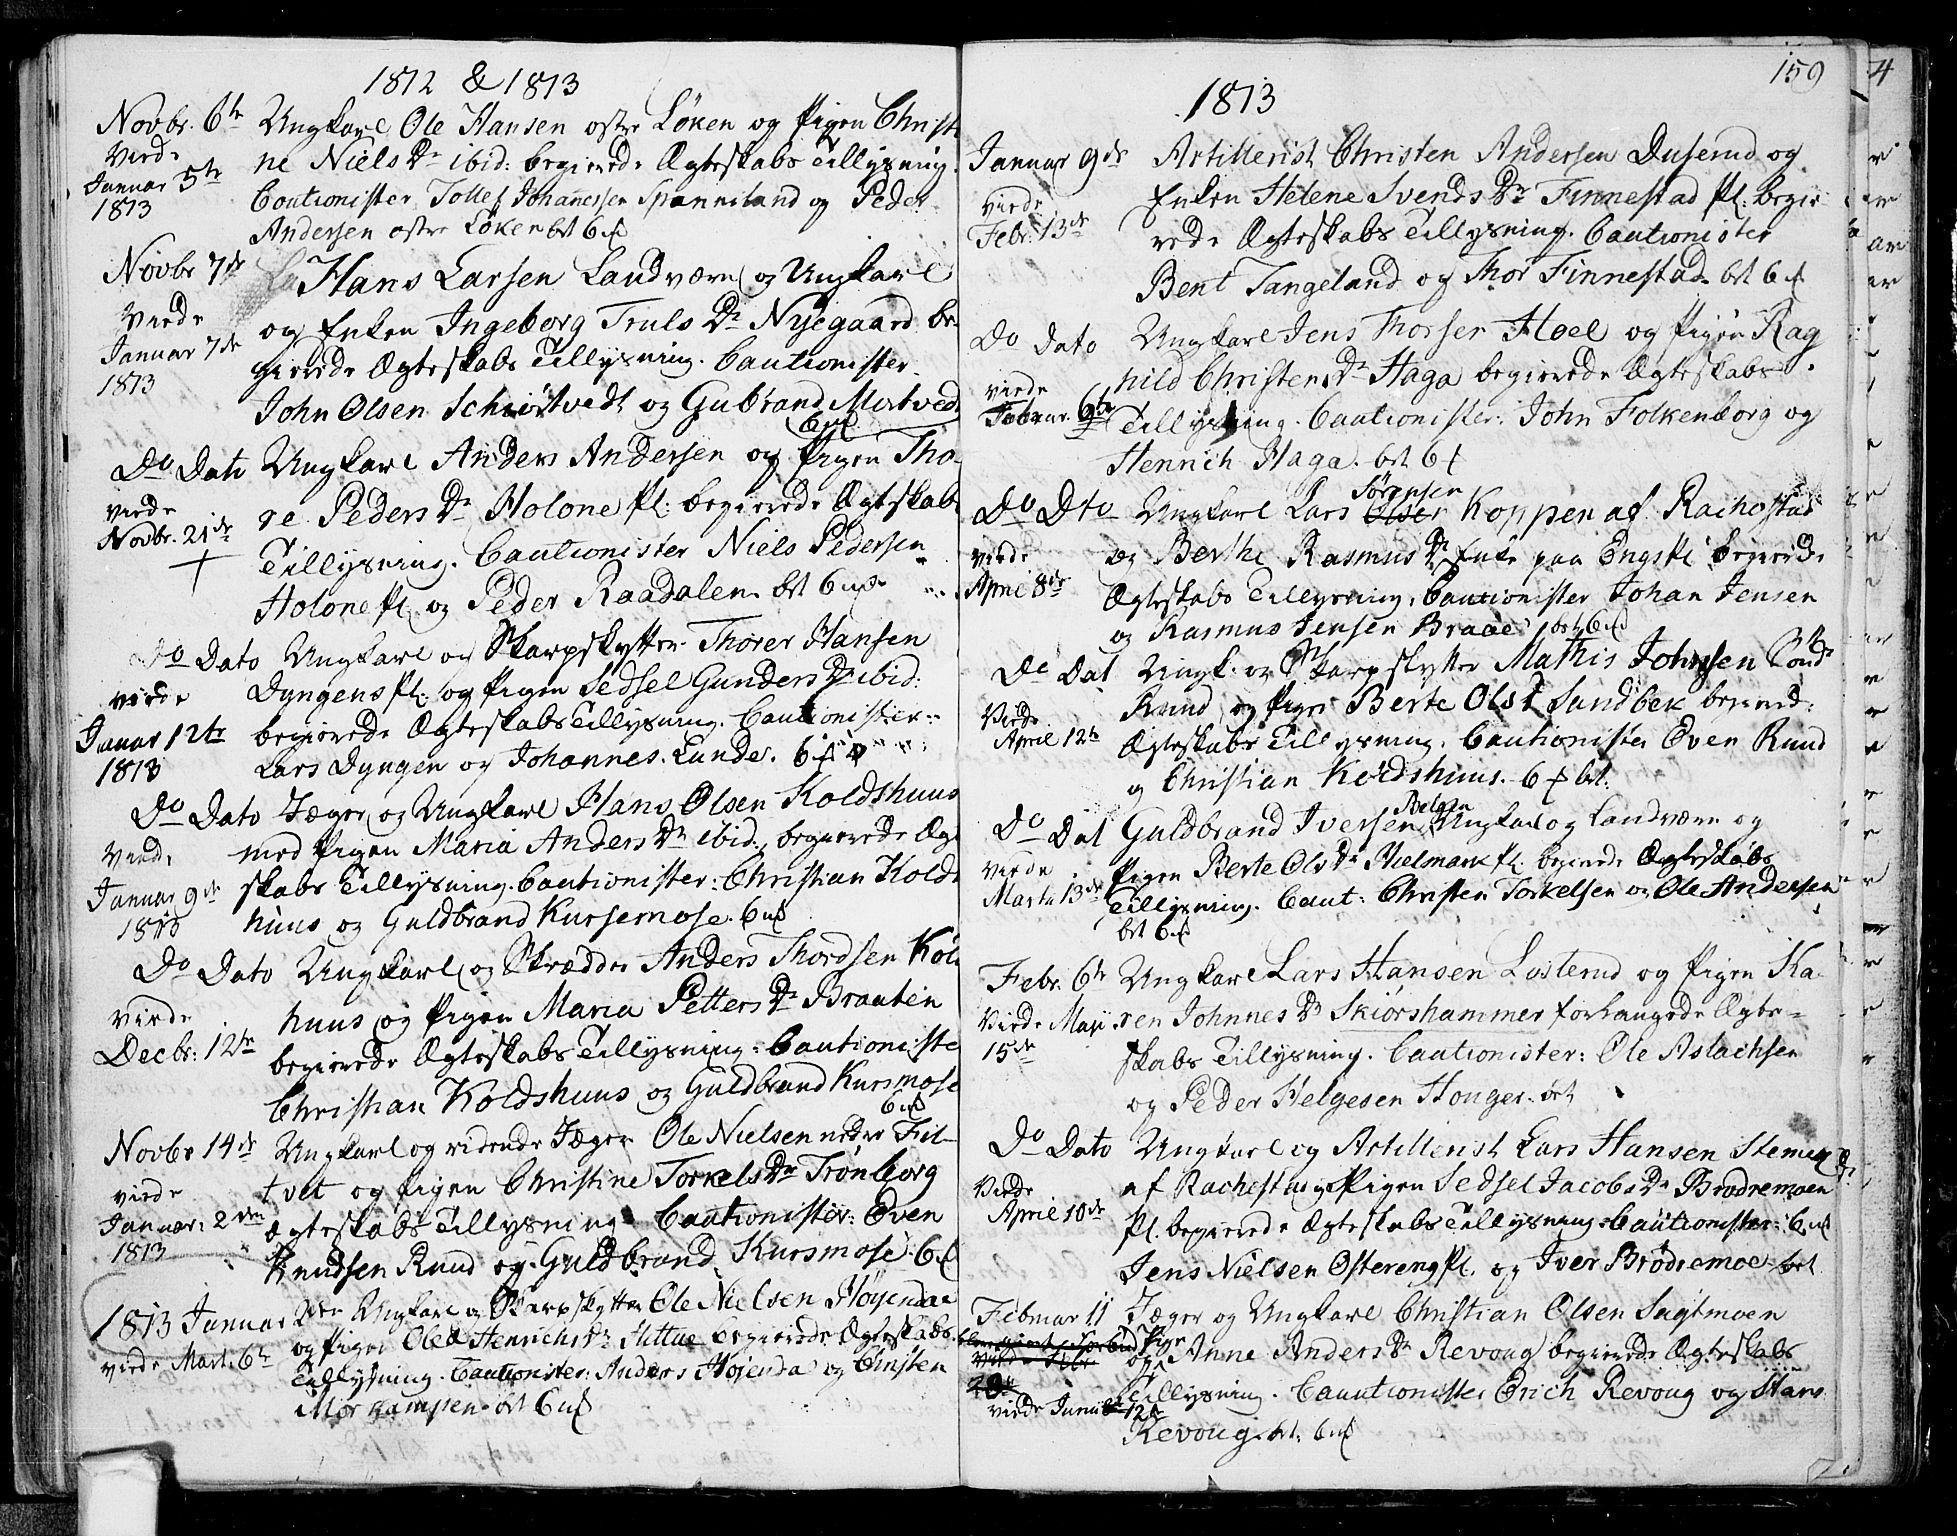 1812 & 1813
Novbr. 6te Ungkarl Ole Hansen ostre Løken og Pigen Christi
Viede ne Niels Dr ibid: begierede Ægteskabs Tillysning.
Januar 5te Cautionister Tollef Johannessen Spænniland og Peder
1813 Andersen ostre Løken bet 6
Novbr 7de Hans Larsen Landværn og Ungkarl
Viede og Enken Ingeborg Truls Dr Nyegaard be-
Januar 7de gierede Ægteskabs Tillysning. Cautionister
1813 John Olsen Schiøstvedt og Gubrand Mortvedt
Do Dato Ungkarl Anders Andersen og Pigen Tho-
viede re Peders Dr Holone Pl: begierede Ægteskabs
Novbr. 21de Tillysning. Cautionister Niels Pedersen
Holone Pl og Peder Raadalen bet 6
Do Dato Ungkarl og Skarpskytter Thorer Hansen
viede Dyngens Pl: og Pigen Sedsel Gunders Dr ibid:
Januar 12te begierede Ægteskabs Tillysning. Cautionister
1813 Lars Dyngen og Johannes Lunde. 6
Do Dato Jæger og Ungkarl Hans Olsen Koldshuus
Viede med Pigen Maria Anders Dr ibid. begierede Ægte
Januar 9de skabs Tillysning. Cautionister: Christian Kolds
1813 huus og Guldbrand Kursemose. 6
Do Dato Ungkarl og Skrædder Anders Thordsen Kold
viede huus og Pigen Maria Petters Dr Brauten
Decbr: 12te begierede Ægteskabs Tillysning: Cautioniste
Christian Koldshuus og Guldbrand Kursmose
6
Novbr 14de Ungkarl og ridende Jæger Ole Nielsen nedre Fil-
viede tvet og Pigen Christine Torkels Dr Trønborg
Januar: 2den ægteskabs Tillysning Cautionister: Even
1813 Knudsen Ruud og Guldbrand Kursmose 6
1813 Januar 2den Ungkarl og Skarpskytter Ole Nielsen Høyendae
viede Mart. 6te og Pigen Olea Henrichs Dr Hittue begierede Ægteskabs
Tillysning. Cautionister: Anders Højenda og Christen
Mørkampen bet 6
159
1813
Januar 9de Artillerist Christen Andersen Duserud og
viede Enken Helene Svends Dr Finnestad Pl: begie
Febr: 13de rede Ægteskabs Tillysning. Cautionister
Bent Tangeland og Thor Finnestad bet 6
Do Dato Ungkarl Jens Thorser Hoel og Pigen Rag
viede hild Christens Dr Haga begierede Ægteskabs
Februar. 9de Tillysning. Cautionister: John Folkenborg og
Hennich Haga. bet 6
Sørensen
Do Dto Ungkarl Lars Olser Koppen af Rachestad
viede og Berthe Rasmus Dr Enke paa Engsti begierede
April 8de Ægteskabs Tillysning. Cautionister Johan Jensen
og Rasmus Jensen Braae bet 6
Do Dat Ungk: og Skarpskytter Mathis Johnsen Sond
Viede Ruud og Pigen Berte Ols D Sundbek begiered:
April 12te Ægteskabs Tillysning. Cautionister Even Ruud
og Christian Koldshuus. 6 bet.
Do Dat Guldbrand Iversen Ungkarl og Landværn og
viede Pigen Berte Ols Dr Hielmark Pl. begierede Ægteskabs
Marti 13de Tillysning. Caut: Christen Torkelsen og Ole Andersen
bet 6
Febr. 6te Ungkarl Lars Hansen Losterud og Pigen Ka-
Viede Maji ren Johnnes Dr Skiørshammer forlangede Ægte-
15de skabs Tillysning. Cautionister: Ole Aslachsen
og Peder Helgesen Honger. bet
Do Dato Ungkarl og Artillerist Lars Hansen Stemen
Viede af Rachestad og Pigen Sedsel Jacobs Dr Brødremoen
April 10de Pl. begierede Ægteskabs Tillysning Cautionister: 6
Jens Nielsen Østereng Pl. og Iver Brødremoe bet
Februar 11 Jæger og Ungkarl Christian Olsen Sagtmoen
og Pige Anne Anders Dr Revoug begierede Ægteskabs
Tillysning. Cautionister Erich Revoug og Hans
viede Junii 12te Revoug. bet. 6